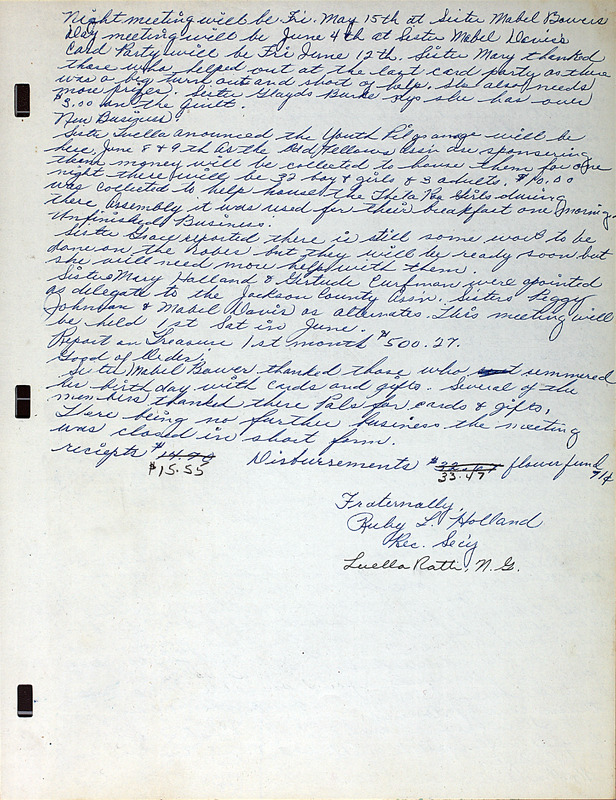 Night meeting will be Fri. May 15th at Sister Mabel Bowers
Day meeting will be June 4th at Sister Mabel Davis's
Card Party will be Fri June 12th. Sister Mary thanked
those who helped out at the last card party as there
was a big turn out and short of help. She also needs
more prizes. Sister Glayds Burke says she has over
$3.00 on the quilt.
New Business;
Sister Luella anounced the Youth Pilgramage will be
here June 8 & 9th as the Odd Fellows Assn are sponsering
them money will be collected to house them for one
night there will be 32 boy & girls & 3 adults. $10.00
was collected to help house the Theta Rho Girls during
there Assembly it was used for their breakfast one morning
Unfinished Business.
Sister Gray reported there is still some work to be
done on the Robes but they will be ready soon but
she will need more help with them.
Sisters Mary Holland & Gertude Curfman were apointed
as delegate to the Jackson County Assn. Sisters Peggy
Johnson & Mabel Davis as alternates. This meeting will
be held 1st Sat in June.
Report on Treasure 1st month $500.27.
Good of Order;
Sister Mabel Bower thanked those who remmered
her birthday with cards and gifts. Several of the
members thanked there Pals for cards & gifts,
There being no further business the meeting
was closed in short form.
reciepts $ Disbursements $ flower fund 71¢
$15.55 33.47
Fraternally,
Ruby L. Holland
Rec. Sec'y
Luella Rath, N.G.